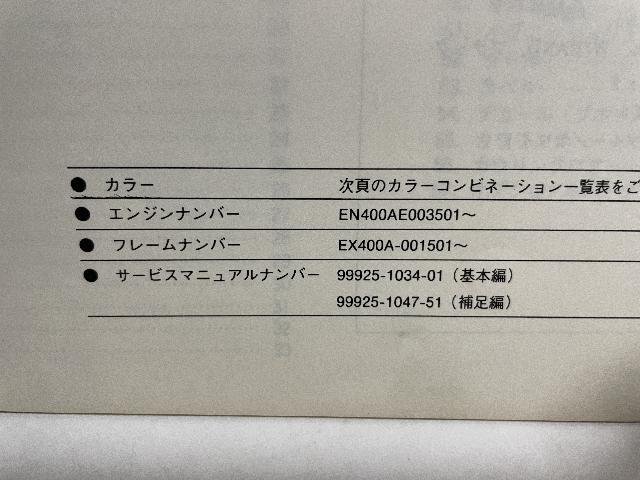 ● カラー 次頁のカラーコンビネーション一覧表をご
● エンジンナンバー EN400AE003501～
● フレームナンバー EX400A-001501～
● サービスマニュアルナンバー 99925-1034-01（基本編）
99925-1047-51（補足編）